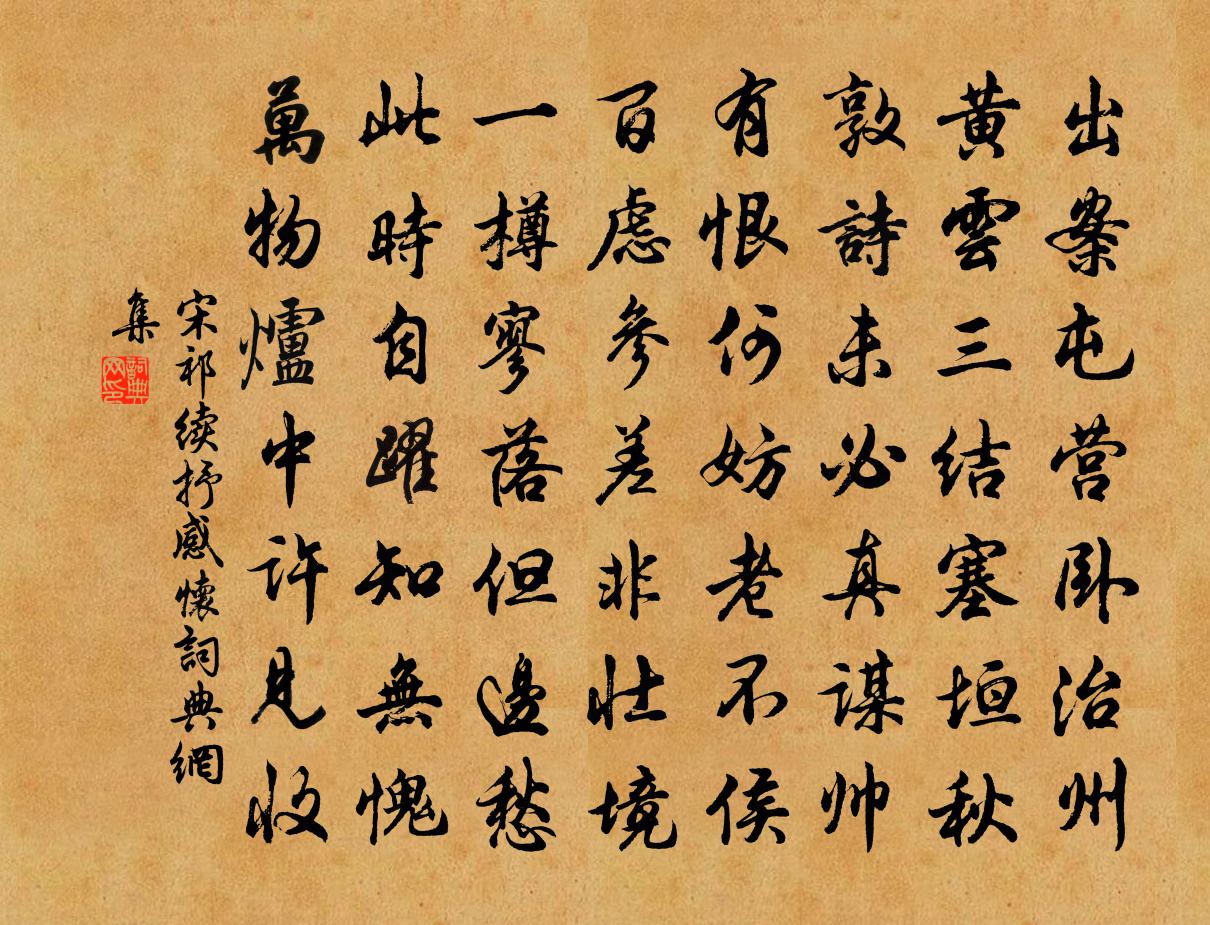 出桊屯营卧治州
黄雲三結塞垣秋
敦詩未必真谋帅
有恨何妨老不侯
百虑參差非壮境
一樽寥落但邊愁
此時自躍知無愧
萬物爐中许見收
宋祁续抒感懷詞典網
集
詞典网印